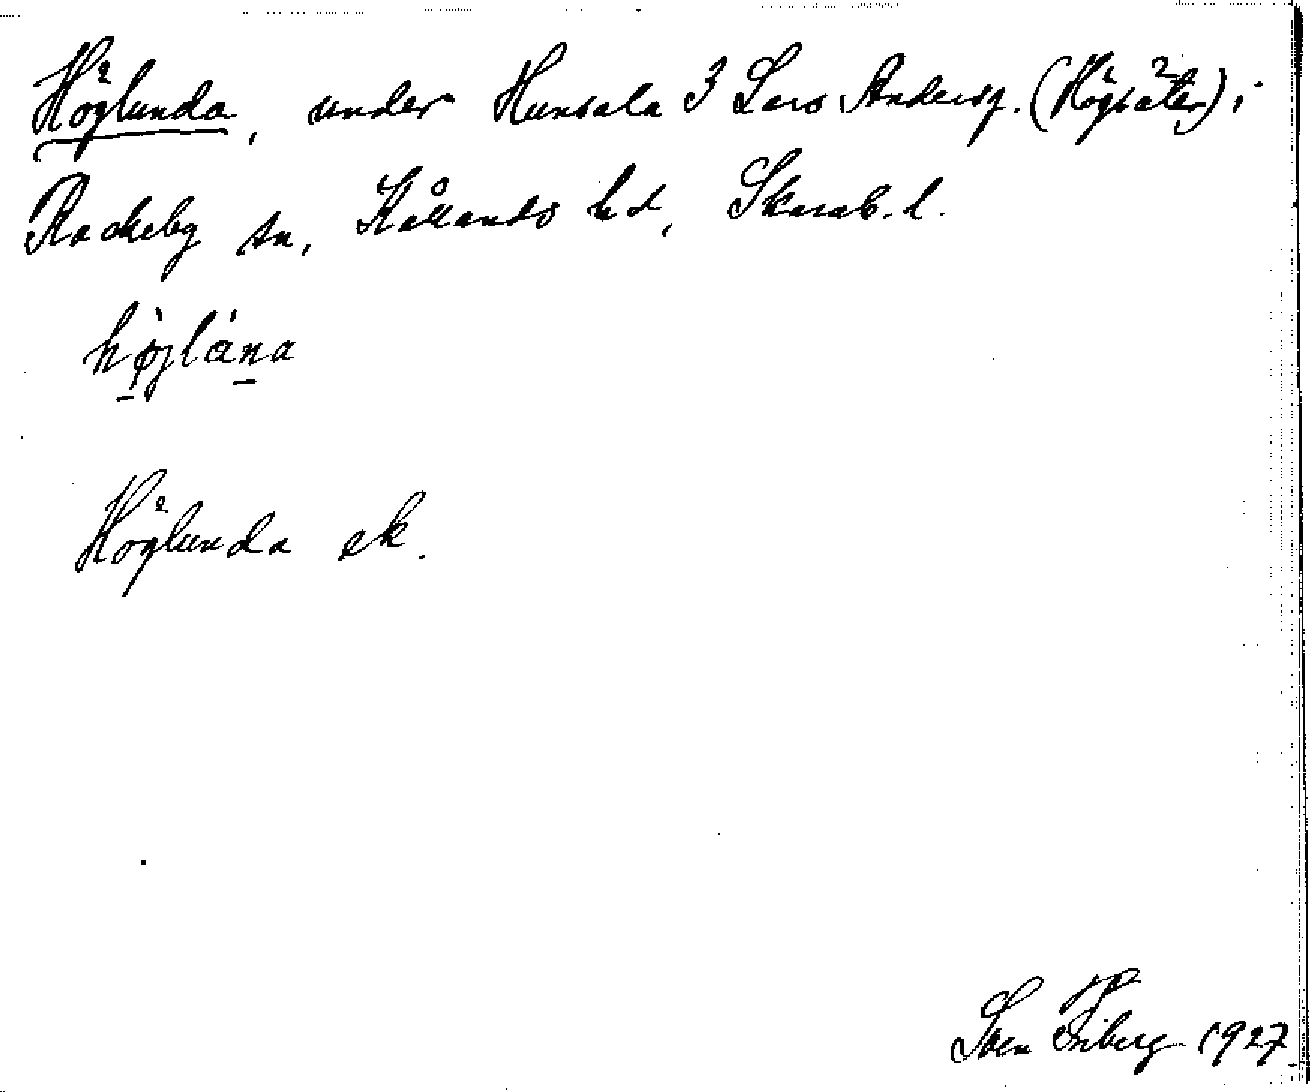 Höglunda, under Hunsala 3 Lars Andersg. (Högsäter) i
Rackeby sn, Kållands hd, Skarab. l.
hø̀jlána
Höglunda ek.
Sven Friberg 1927